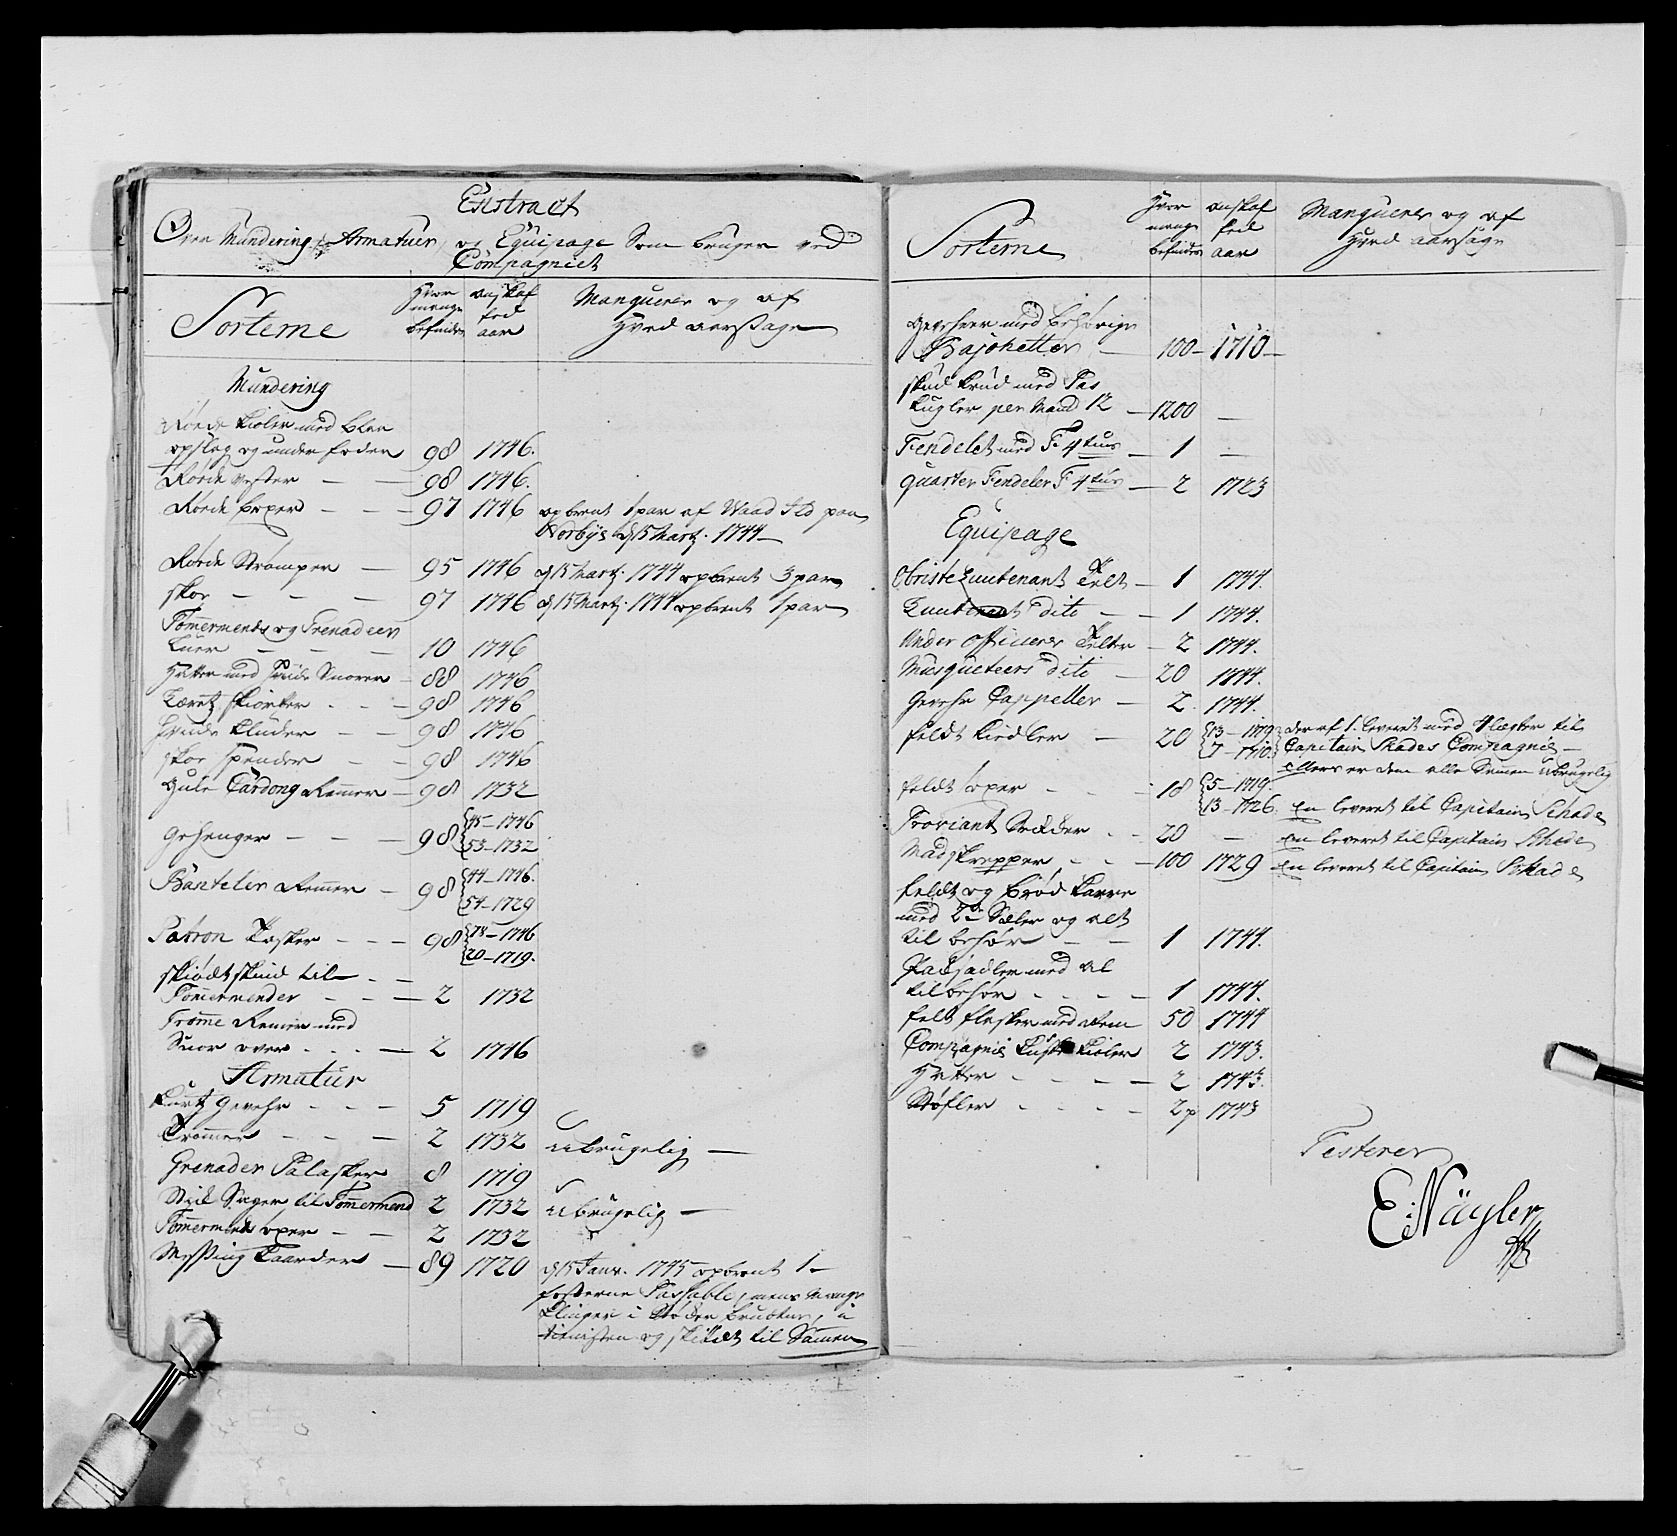 Extract
Over Mundering, Armatuer og Equipage Som bruges ved
Compagniet
Sorterne
Hvor mange befindes
anskaffed aar
Manquerer og af
Hvad aarsage
Mundering
Røede Kioler med blaa
opslag og under foeder 98 1746.
Røede vester 98 1746.
Røede boxer 97 1746 opbrent 1 par af Waad Ild paa
d 15 Martz. 1744
Røede Strømper 95 1746 d 15 Martz. 1744 opbrent 3 par
skoe 97 1746 d 15 Martz. 1744 opbrent 1 par
Tømmermends og Grenadeer
Luer 10 1746
Hatter med Snorer 88 1746
skiorter 98 1746
Kluder 98 1746
skoe spender 98 1746
Gule Cardong Remer 98 1732
Gehenger 98 45-1746
53-1732
Banteler Remer 98 44-1746.
54-1729
Patron Tasker 98 78-1746
20-1719.
skiødtskind til
Tømmermender 2 1732
Tromme Remer med
Snor over 2 1746
Armatur
Kurtz Gevehr 5 1719
Trommer 2 1732 ubrugelig
Grenader Palasker 8 1719
Stik Sager til Tømmermend 2 1732 ubrugelig
Tømmermends øxer 2 1732
Messing Kaarder 89 1720 d 15 Janv. 1745 opbrent 1
Passable, mens mange
Klinger i
og til Samen
Sorterne
Hvor mange befindes
anskaffed aar
Manquerer og af
Hvad aarsage
Gevehrer med behørige
Bajonetter 100 1710
skud krud med Pas
kugler per Mand 12 1200
Fendelet med F 4tus 1
quarter Fendeler F 4tus 2 1723
Equipage
Obriste Luutenant Telt 1 1744.
Luutenant dito 1 1744.
Under Officerer Telter 2 1744.
Musqueteers dito 20 1744.
Gevehr Cappeller 2 1744.
feldt Kiedler 20 13-1709 der af 1 leveret med til
7-1710 Capitain Skades Compagnie
ellers er dem alle Samen ubrugelig
feldt øxer 18 5-1719.
13-1726. En leveret til Capitain Schade
Proviant Sekker 20 En leveret til Capitain Schade
Madskrepper 100 1729 En leveret til Capitain Schade
feldt og brød Karre
med 2de Sæler og alt
til behør 1 1744.
Paksadler med al
tilbehør 1 1744.
felt flasker med Rem 50 1744
Compagnie Kuske Kioler 2 1743.
Hatter 2 1743.
Støfler 2 p 1743
Testerer
E: Nägler